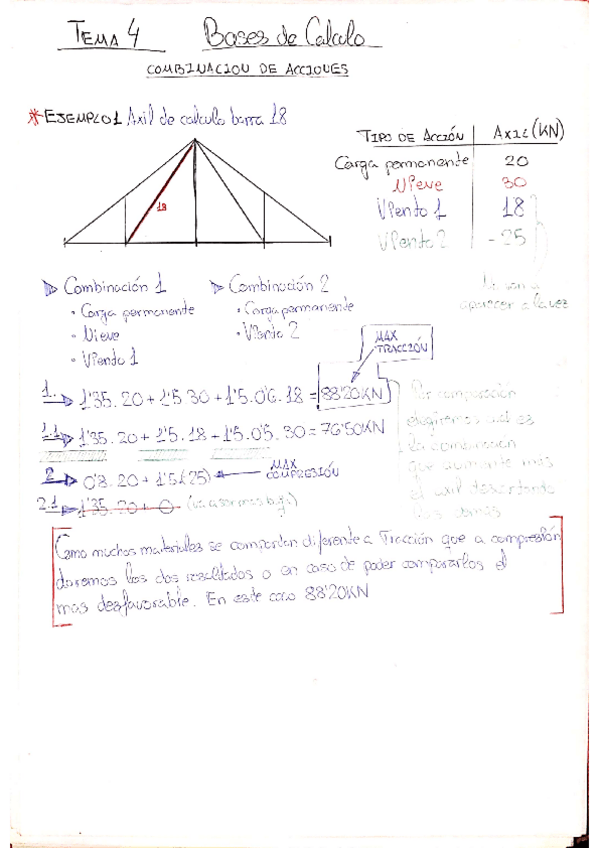 TEMA 4 Bases de Calculo
COMBINACION DE ACCIONES
*EJEMPLO 1 Axil de calculo barra 18
TIPO DE ACCIÓN AXIL (KN)
Carga permanente 20
Nieve 30
Viento 1 18
Viento 2 -25
18
No van a
aparecer a la vez
Combinación 1
• Carga permanente
• Nieve
• Viento 1
Combinación 2
• Carga permanente
• Viento 2
MAX
TRACCIÓN
1. 1'35. 20 + 1'5 30 + 1'5. 0'6. 18 = 88'20KN
1.1 1'35. 20 + 1'5. 18 + 1'5. 0'5. 30 = 76'50KN
2 0'8. 20 + 1'5(-25) MAX
COMPRESIÓN
2.1 1'35. 20 + 0
Por comparación
elegiremos cual es
la combinación
que aumente más
el axil descartando
las demás
Como muchos materiales se comportan diferente a Tracción que a compresión
daremos los dos resultados o en caso de poder compararlos el
mas desfavorable. En este caso 88'20KN